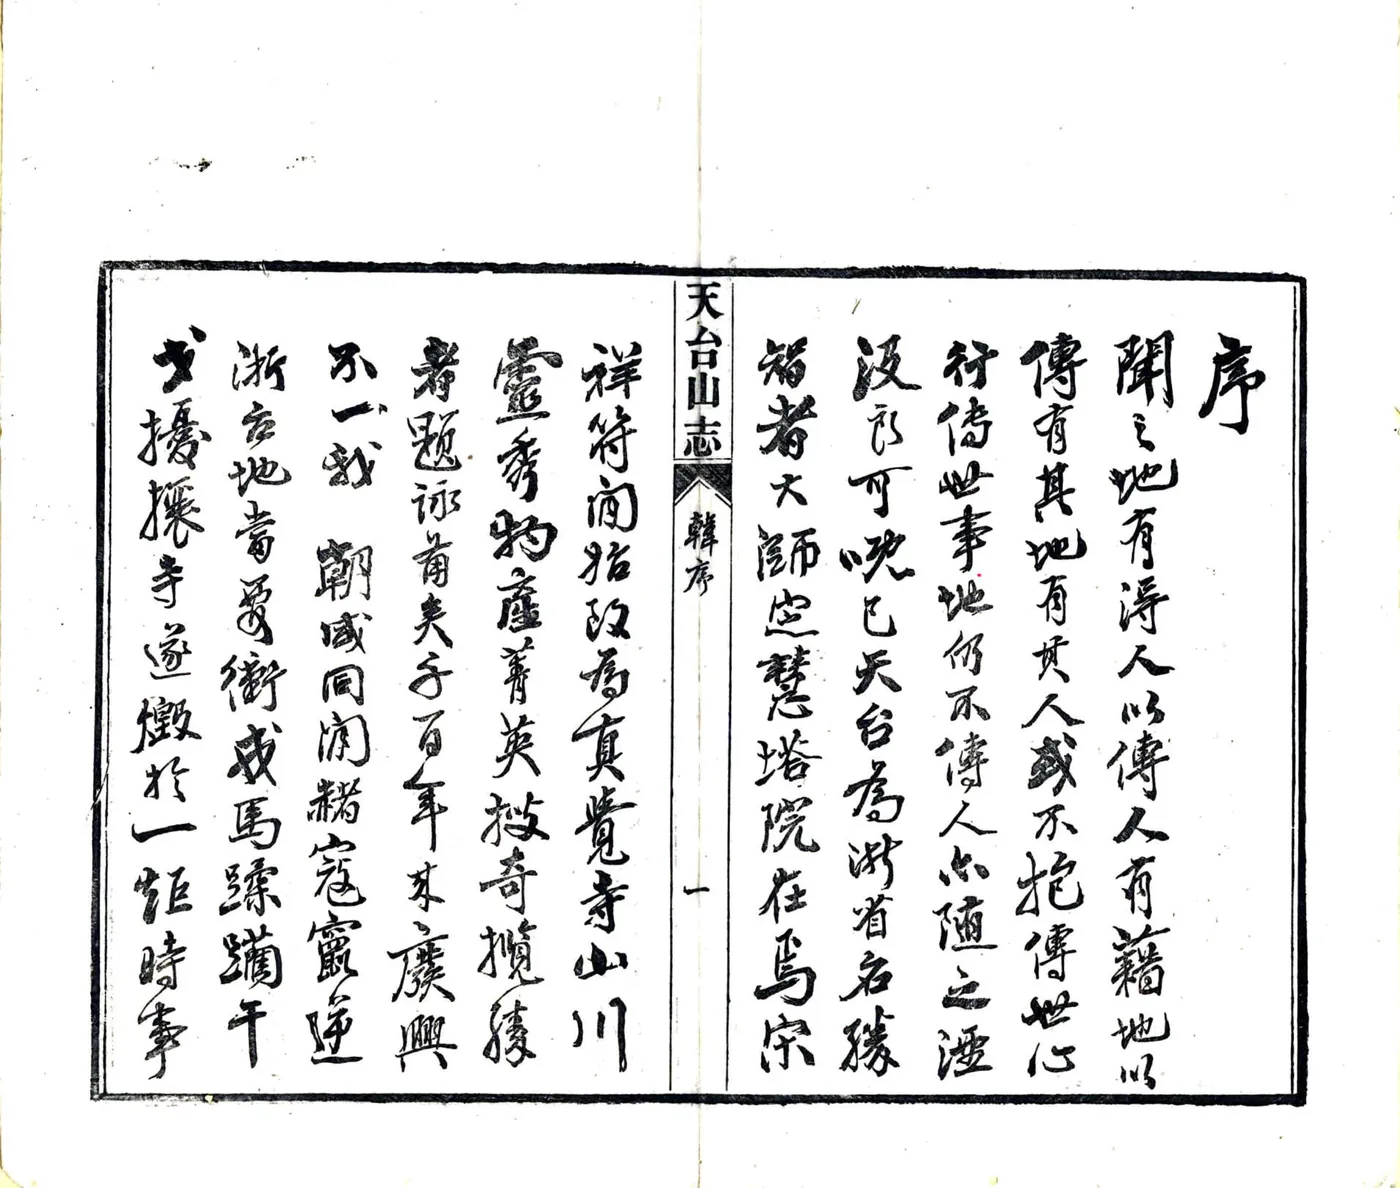 序
聞之地有得人以傳人有藉地以
傳有其地有其人或不抱傳世心
行傳世事地仍不傳人亦隨之湮
没良可嘅已天台為浙省名勝
智者大師定慧塔院在焉宋
天台山志
韓序
一
祥符間始改為真覺寺山川
靈秀物產菁英搜奇攬勝
者題詠莆矣千百年來廢興
不一我 朝咸同間赭寇竄逆
浙台地當要衝戎馬蹂躪干
戈擾攘寺遂燬於一炬時事